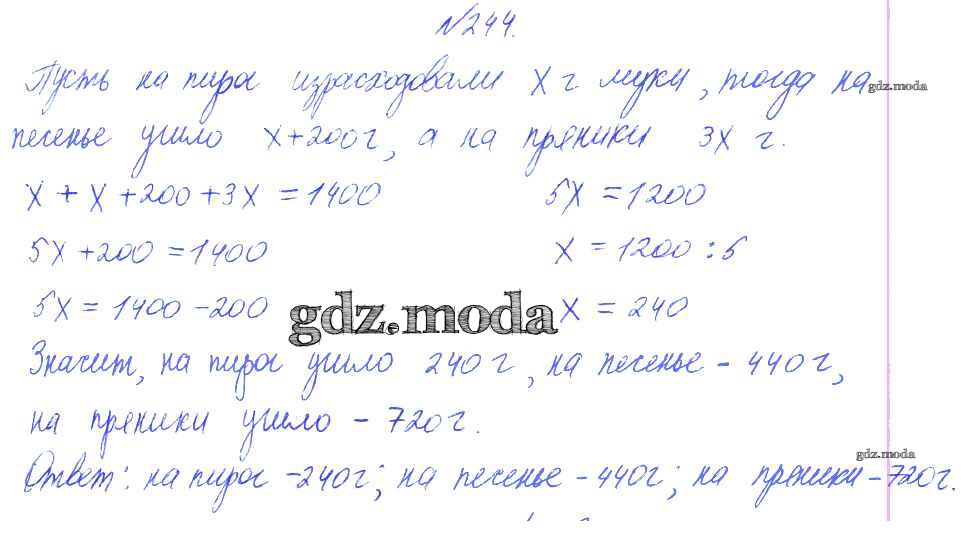 №244.
Пусть на пирог израсходовали х г муки, тогда на
gdz.moda
печенье ушло х+200г, а на пряники 3х г.
х + х +200 +3х = 1400 5х = 1200
5х +200 = 1400 х = 1200 : 5
5х = 1400 -200 х = 240
gdz.moda
Значит, на пирог ушло 240 г, на печенье - 440 г,
на пряники ушло - 720 г.
gdz.moda
Ответ: на пирог -240г; на печенье -440г; на пряники -720г.